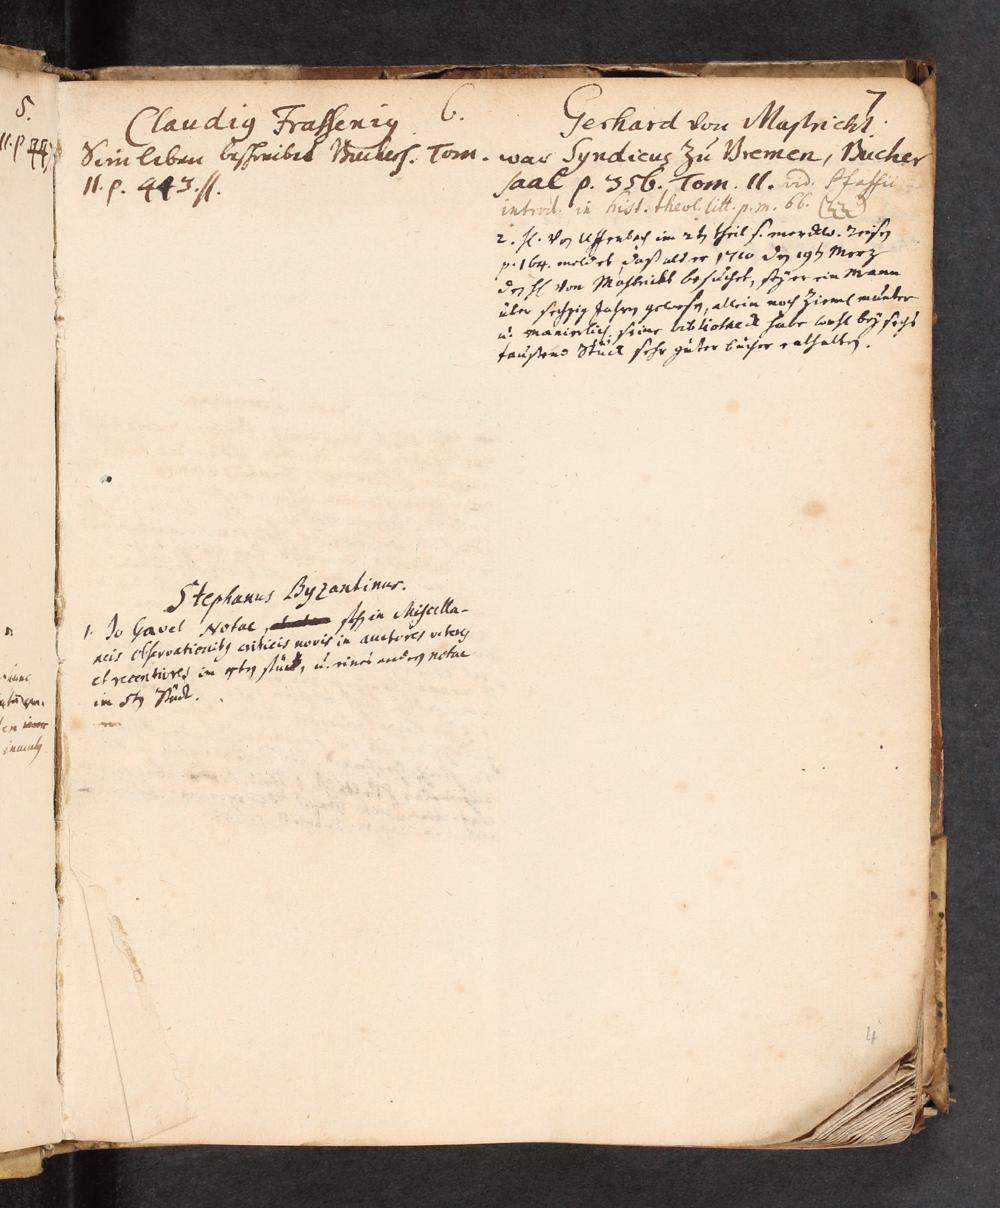 6.
Claudius Frassenius
Sein leben beschreibet Büchers. Tom.
II. p. 943. ſſ.
Stephanus Byzantinus.
1. Jo Gavel Notae, stehen in Miscella-
neis Observationibus criticis novis in auctores veteres
et recentiores im 4ten stück, u. eines andern notae
im 5ten Stück.
7
Gerhard von Mastricht.
war Syndicus zu Bremen, Bücher
saal p. 356. Tom. II. vid. Pfaffii
introd. in hist. theol. litt. p. m. 66. (223)
2. H. von Uffenbach im 2ten theil s. merckw. Reisen
p. 164. meldet, daß als er 1710 den 19ten Merz
den H von Mastricht besuchet, seye er ein Mann
über sechzig Jahren gewesen, allein noch ziemл. munter
u. manierlich, seine bibliotheck habe wohl bey sechs
tausend Stück sehr guter bücher enthalten.
4
5.
II. p